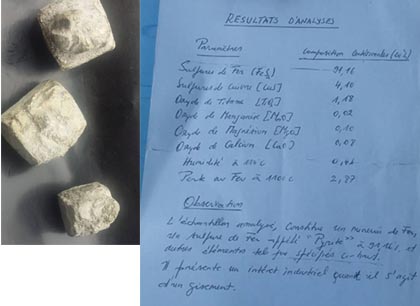 RESULTATS D'ANALYSES
Paramètres Composition Centésimale (en %)
Sulfures de Fer (FeS2) 91,16
Sulfures de Cuivre [CuS] 4,10
Oxyde de Titane 1,18
Oxyde de Manganèse [MnO] 0,02
Oxyde de Magnésium [MgO] 0,10
Oxyde de Calcium [CaO] 0,08
Humidité à 110°C
Perte au Feu à 1100°C 2,87
Observation
L'échantillon analysé, Constitue un minerai de Fer,
de sulfure de Fer appelé "Pyrite" à et
autres éléments tels que spécifiés ci-haut.
Il présente un intérêt industriel quand il s'agit
d'un gisement.